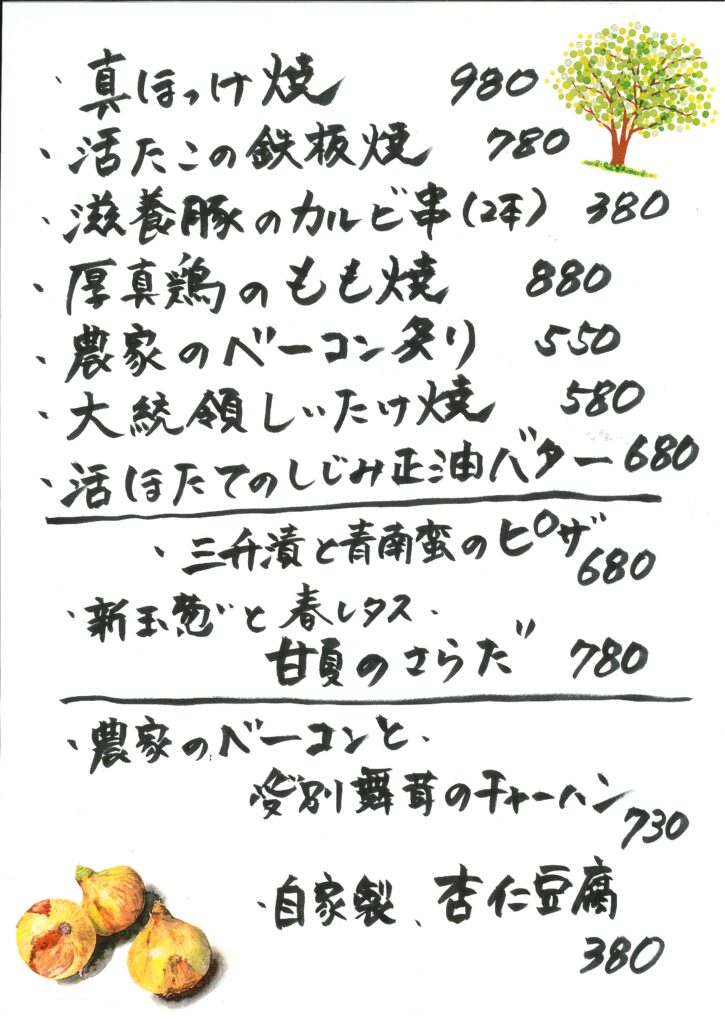 ・真ほっけ焼 980
・活たこの鉄板焼 780
・滋養豚のカルビ串(2本) 380
・厚真鶏のもも焼 880
・農家のベーコン炙り 550
・大統領しいたけ焼 580
・活ほたてのしじみ正油バター 680
・三升漬と青南蛮のピザ 680
・新玉葱と春レタス、
甘夏のさらだ 780
・農家のベーコンと、
愛別舞茸のチャーハン 730
・自家製、杏仁豆腐
380